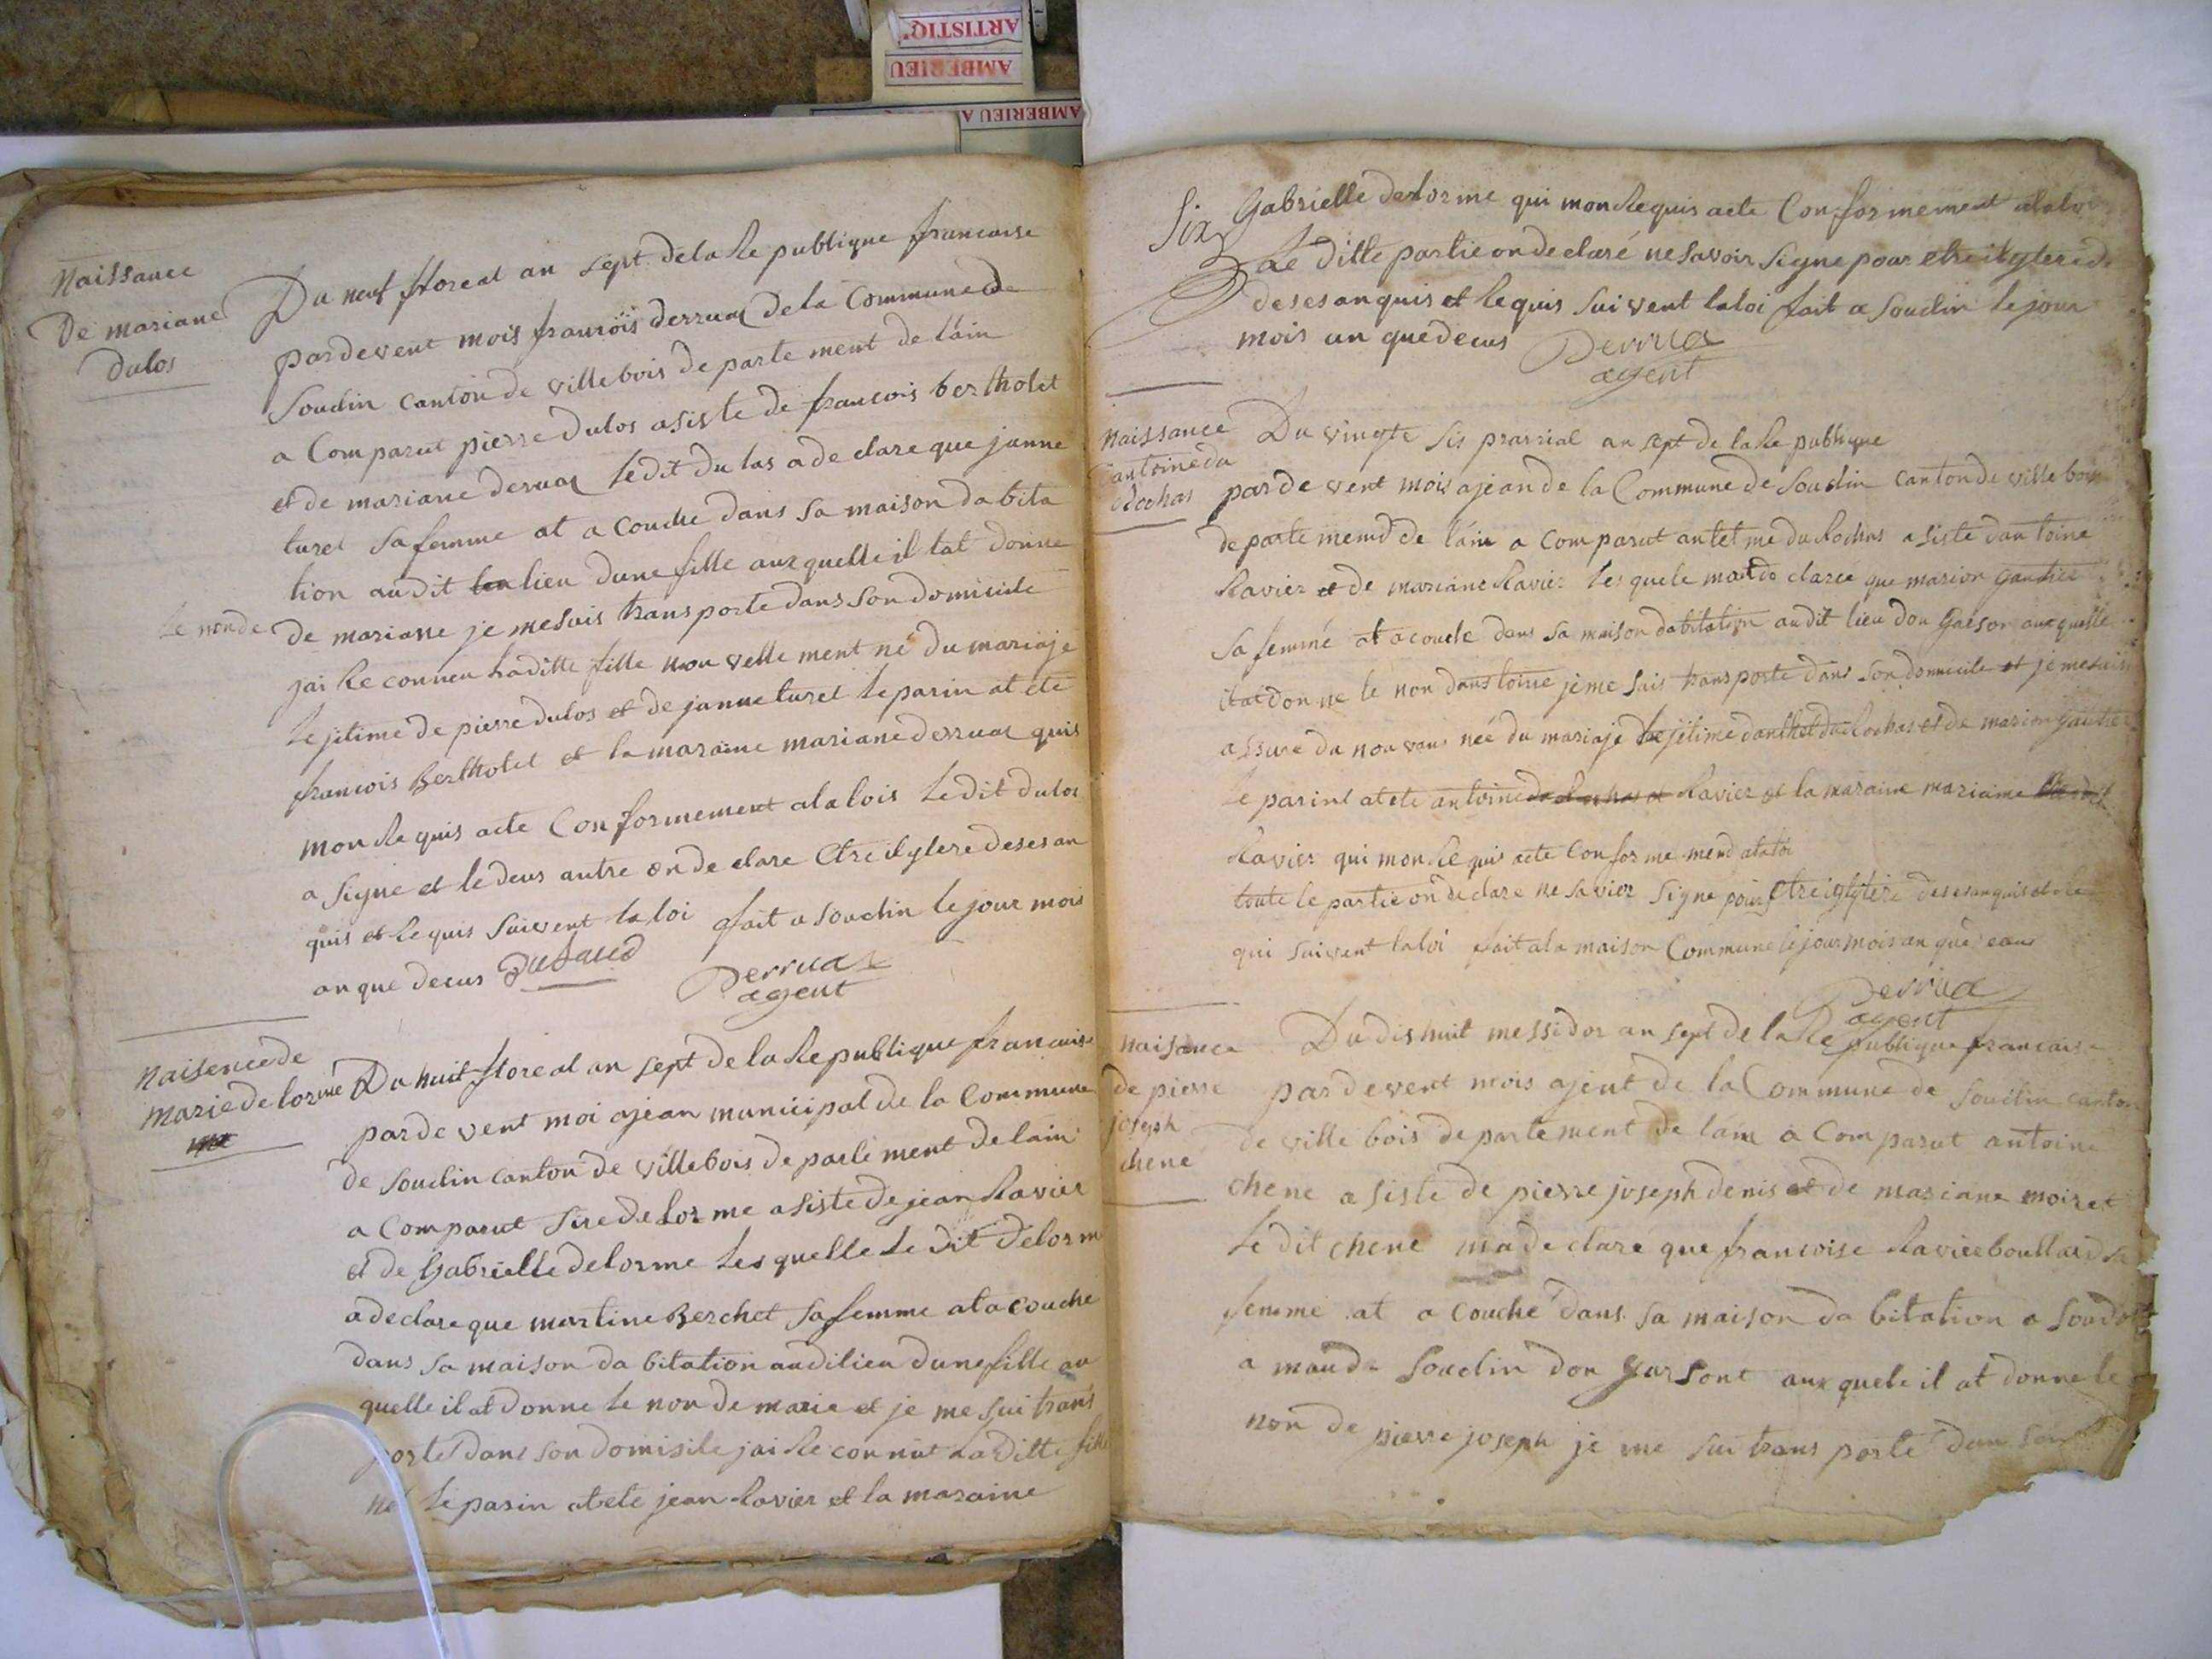 ARTISTIQ'
AMBERIEU
AMBERIEU A
Naissance
De mariane
dulos
Du neuf floreal an sept dela Republique francoise
pardevent mois francois derruaz dela Commune de
Soudin canton de villebois departement de l'ain
a Comparut pierre dulos asiste de francois bertholet
et de mariane deruaz ledit dulas a declare que janne
turel sa femme at a couche dans sa maison dabita
tion audit lieu dune fille aux quelle il tat donne
le non de
de mariane je me suis transporte dans son domicile
jai Reconneu laditte fille nouvellement né du mariaje
lejitime de pierre dulos et de janne turel le parin at eté
francois Bertholet et la maraine mariane derruaz quis
mon Requis acte Conformement alalois ledit dulos
a signe et le deus autre on declare Etre ilytere deses an
quis et Requis suivent la loi fait a soudin le jour mois
an que decus
Derruaz
agent
Naisence de
marie delorme
Du huit floreal an sept de la Republique francaise
pardevent moi ajean municipal de la Commune
de soudin canton de villebois departement de lain
a Comparut Sire delorme asiste de jean Ravier
et de Gabrielle delorme les quelle le dit delorm
a declare que martine Berchet sa femme at a couche
dans sa maison dabitation audilieu dune fille au
quelle il at donne le non de marie et je me sui trans
porté dans son domisile jai Reconnut laditte fille
né le parin at ete jean Ravier et la maraine
Six
Gabrielle delorme qui mon Requis acte Conformement alaloi
Le ditte partie on declaré ne savoir signe pour etre ilytere de
deses anquis et Requis suivent laloi fait a soudin le jour
mois an que decus
Derrua
agent
Naissance
dantoine du
Rochas
Du vingte sis prarrial an sept de la Republique
pardevent mois ajean de la Commune de soudin canton de villebois
departemend de l'ain a comparut antelme du Rochas asiste dantoine
Ravier et de mariane Ravier les quele mat declaree que marion gautier
sa femme at a couche dans sa maison dabitation audit lieu don Garson aux quelle
il at donne le non dantoine je me suis transporte dans son domicile et je me suis
assure du nouvaus née du mariaje lejitime danthel du Rochas et de marion gautier
le parint at ete antoine Ravier et la maraine mariaine
Ravier qui mon Requis acte conformemend alaloi
toute le partie on declare ne savier signe pour Etre ilytere deses anquis et de Re
qui suivent laloi fait a la maison Commune le jour mois an que
Derrua
agent
Naisance
de pierre
joseph
chene
Du dis huit messidor an sept de la Republique francaise
pardevent mois ajent de la Commune de soudin canton
de villebois departement de l'ain a Comparut antoine
chene a siste de pierre joseph denis et de mariane moiret
le dit chene ma declaré que francoise Ravier boullard sa
femme at a couché dans sa maison dabitation a
a soudin don garsont aux quele il at donne le
non de pierre joseph je me sui transporté dan son